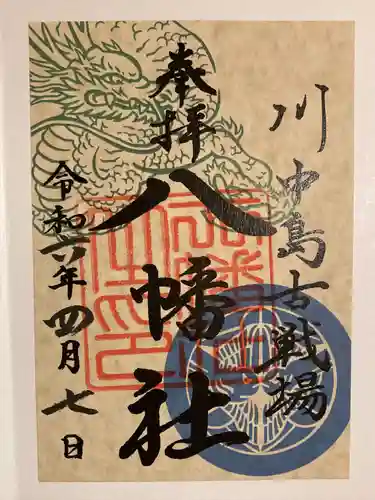 川中島古戦場
奉拝
八幡社
令和六年四月七日